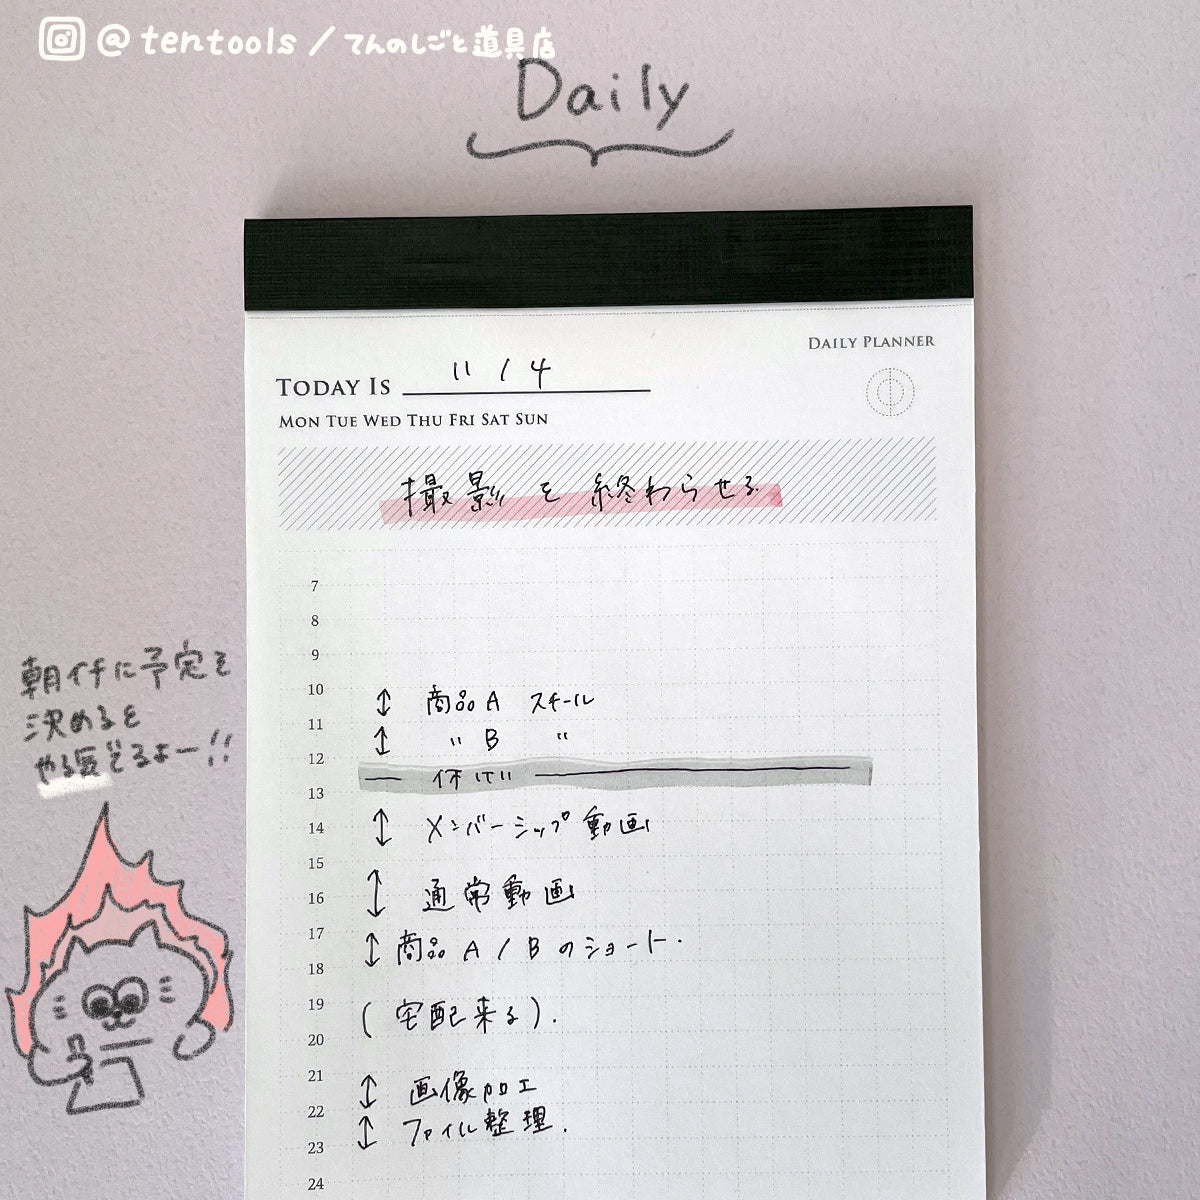 @tentools / てんのしごと道具店
Daily
DAILY PLANNER
TODAY IS 11 / 4
MON TUE WED THU FRI SAT SUN
撮影を終わらせる
7
8
9
10
↕ 商品A スチール
11
↕ 〃 B 〃
12
休けい
13
↕ メンバーシップ動画
14
15
↕ 通常動画
16
17
↕ 商品A/Bのショート.
18
19
(宅配来る).
20
21
↕ 画像加工
22
↕ ファイル整理.
23
24
朝イチに予定を
決めると
やる気でるよー!!